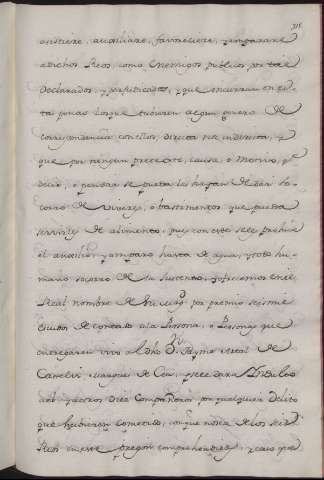 315
asistiere, auxiliare, favoreciere, y amparare
a dichos Reos como Enemigos publicos por tales
declarados, y que incurran en es
tas penas los que tubieren algun genero de
correspondencia con ellos, directa ni indirecta, y
que por ningun pretexto, causa, o motivo, que
dezir, o pensar se pueda les hayan de dar so
corro de viveres, o bastimentos que pueda
servirles de alimento, pues con este se les prohive
el auxilio, y amparo hasta de agua, y todo hu
mano socorro de su sustento, y ofrecemos en el
Real nombre de su Magd. por premio seis mil
escudos de contado a la Persona, o Personas que
entregaren vivo al dho Dn. Jayme Artal de
Castelvi, Marques de Cea, y se le dara Yndulto
a el y a otros diez compañeros por qualquier delito
que hubieren cometido, aunque no sea de los seis
Reos en este pregon comprehendidos, y caso que